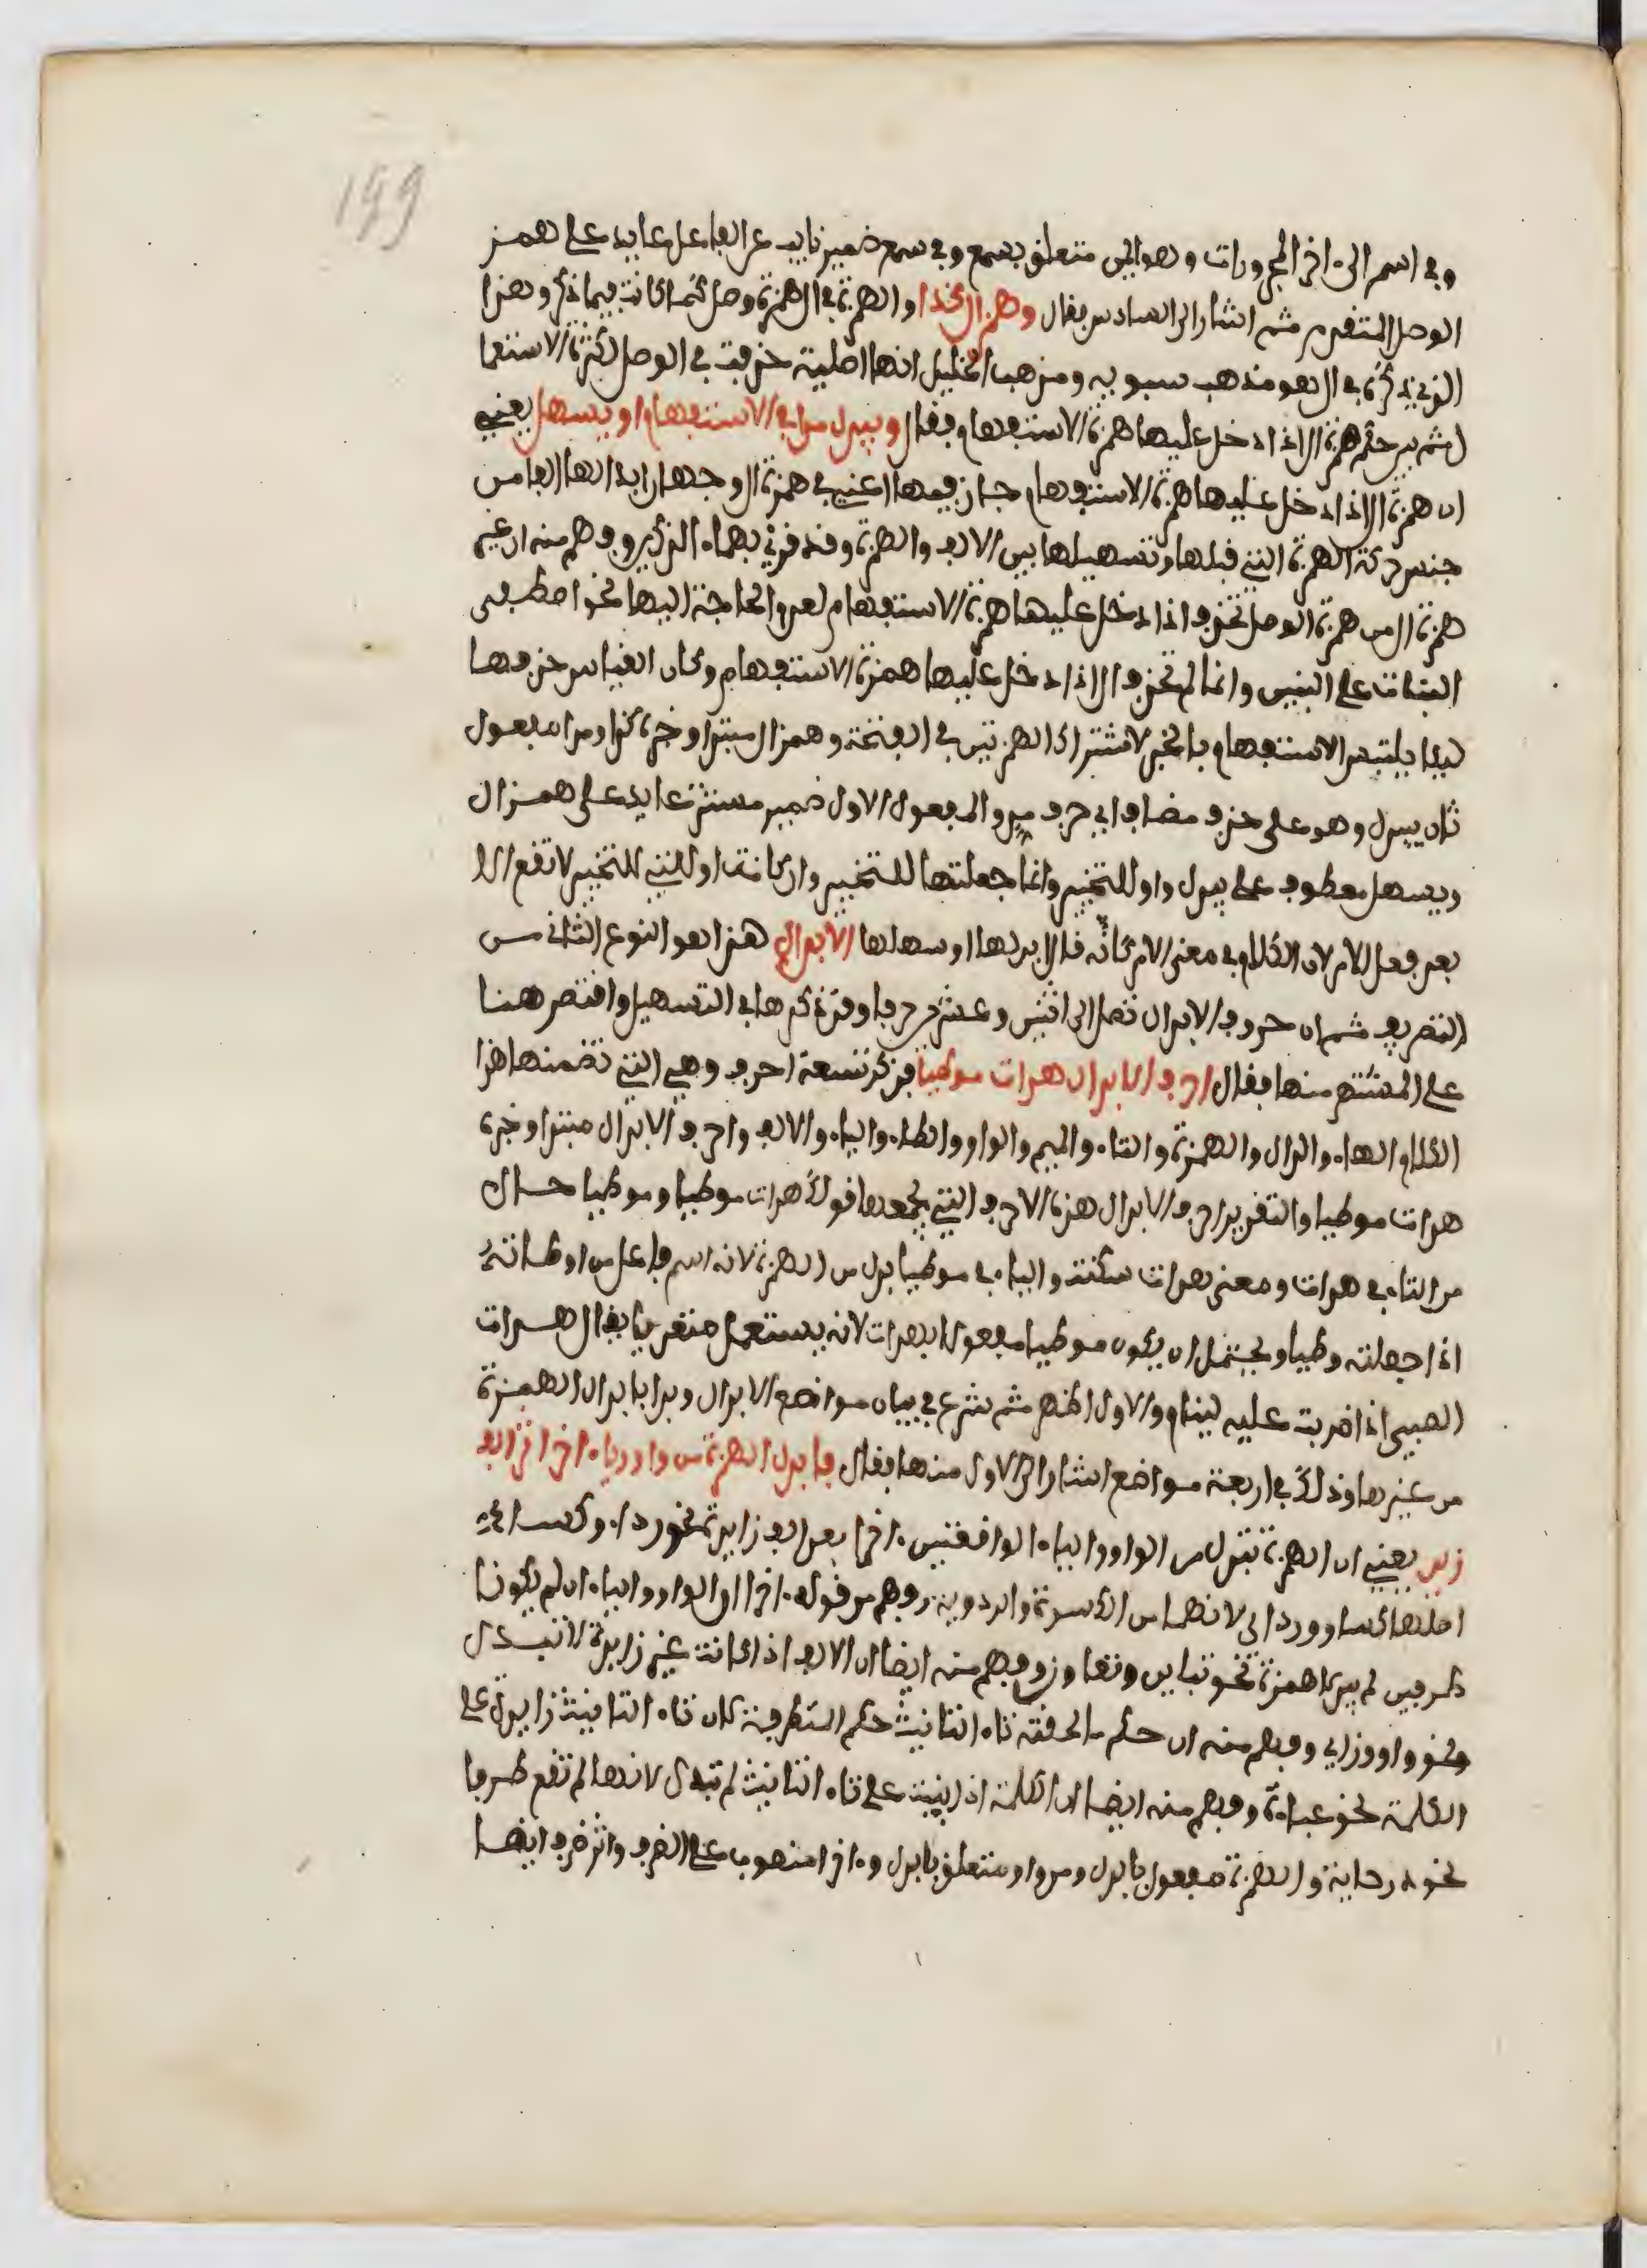 199
وفي اسم الى اخر المجرورات وهو ايمن متعلق بسمع وفي سمع ضمير نايب عن الفاعل عايد على همز
الوصل المتقدم ثم اشار الى السادس بقال وهمز ال كذا والهمزة في ال همزة وصل كما كانت فيما ذكر وهذا
الذي ذكره في ال هو مذهب سيبويه ومذهب الخليل انها اصلية حذفت في الوصل لكثرة الاستعما
ل ثم بين حكم همزة ال اذا دخل عليها همزة الاستفهام فقال ويبدل مدا في الاستفهام او يسهل يعني
ان همزة ال اذا دخل عليها همزة الاستفهام جاز فيها اعني في همزة ال وجهان ابدالها الفا من
جنس حركة الهمزة التي قبلها وتسهيلها بين الالف والهمزة وقد قرئ بهما ءالذكرين وفهم منه ان غير
همزة ال من همزة الوصل تحذف اذا دخل عليها همزة الاستفهام لعدم الحاجة اليها نحو اصطفى
البنات على البنين وانما لم تحذف ال اذا دخل عليها همزة الاستفهام وكان القياس حذفها
ليلا يلتبس الاستفهام بالخبر لاشتراك الهمزتين في الفتحة وهمز ال مبتدا وخبره كذا ومدا مفعول
ثان بيبدل وهو على حذف مضاف اي حرف مد والمفعول الاول ضمير مستتر عايد على همز ال
ويسهل معطوف على يبدل واو للتخيير وانما جعلتها للتخيير وان كانت او التي للتخيير لا تقع الا
بعد فعل الامر لان الكلام في معنى الامر كانه قال ابدلها او سهلها الابدال هذا هو النوع الثاني من
التصريف ثم ان حروف الابدال تصل الى اثنين وعشرين حرفا وقد ذكرها في التسهيل واقتصر هنا
على المشتهر منها بقال احرف الابدال هدات موطيا فذكر تسعة احرف وهي التي تضمنها هذا
الكلام الهاء والدال والهمزة والتاء والميم والواو والطاء والياء والالف واحرف الابدال مبتدا وخبره
هدات موطيا والتقدير احرف الابدال هذه الاحرف التي يجمعها قولك هدات موطيا وموطيا حال
من التاء في هدات ومعنى هدات سكنت والياء في موطيا بدل من الهمزة لانه اسم فاعل من اوطاته
اذا جعلته وطيا ويحتمل ان يكون موطيا مفعولا بهدات لانه يستعمل متعديا يقال هدات
الصبي اذا ضربت عليه لينام والاول اظهر ثم شرع في بيان مواضع الابدال وبدا بابدال الهمزة
من غيرها وذلك في اربعة مواضع اشار الى الاول منها بقال فابدل الهمزة من واو ويا ءاخرا اثر الف
زيد يعني ان الهمزة تبدل من الواو والياء الواقعتين ءاخرا بعد الف زايدة نحو رداء وكساء في
اصلهما كساو ورداي لانهما من الكسوة والردية وفهم من قوله ءاخرا ان الواو والياء ان لم يكونا
طرفين لم يبدلا همزة نحو تباين وتعاوزو وفهم منه ايضا ان الالف اذا كانت غير زايدة لا تبدل
نحو واو وزاي وفهم منه ان حكم ما لحقته تاء التانيث حكم المتطرفة كان تاء التانيث زايدة على
الكلمة نحو عباءة وفهم منه ايضا ان الكلمة اذا بنيت على تاء التانيث لم تبدل لانها لم تقع طرفا
نحو درحاية والهمزة مفعول بابدل ومن واو متعلق بابدل وءاخرا منصوب على الظرف واثر ظرف ايضا